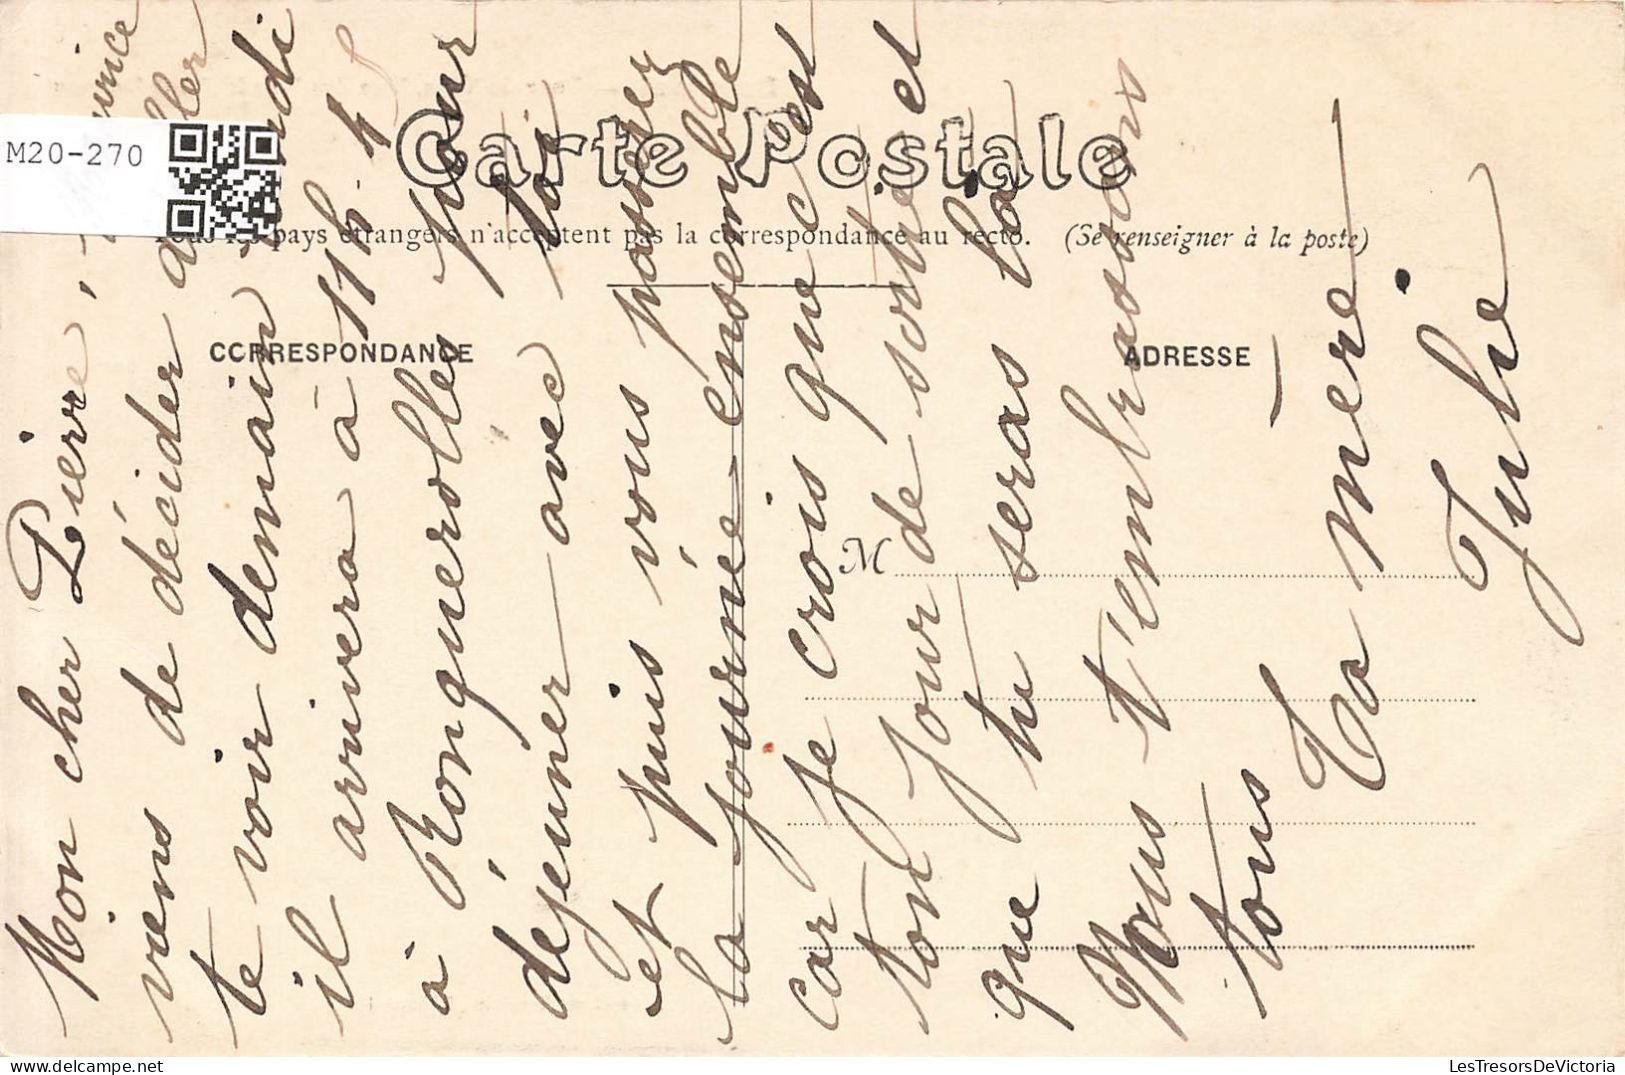 M20-270
Carte Postale
Tous les pays étrangers n'acceptent pas la correspondance au recto. (Se renseigner à la poste)
CORRESPONDANCE
ADRESSE
M
Mon cher Pierre, Maurice
viens de décider d'aller
te voir demain lundi
il arrivera à 11h 45
à Ronquerolles pour
déjeuner avec toi
et puis vous passerez
la journée ensemble
car je crois que c'est
ton jour de sortie et
que tu seras là
Nous t'embrassons
tous
Ta mère
Julie
LesTresorsDeVictoria